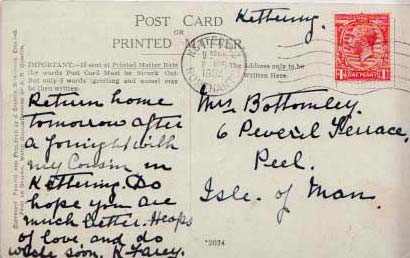 Post Card
OR
PRINTED MATTER.
Kettering.
IMPORTANT:—If sent at Printed Matter Rate
the words Post Card Must be Struck Out
But only 5 words (greeting and name) may
be then written.
Address only to be
Written Here.
KETTERING
ONE PENNY
Return home
tomorrow after
a fornight with
my Cousin in
Kettering. Do
hope you are
much better. Heaps
of love and do
write soon. K Farey.
Mrs Bottomley.
6 Peveril Terrace,
Peel.
Isle. of Man.
2024